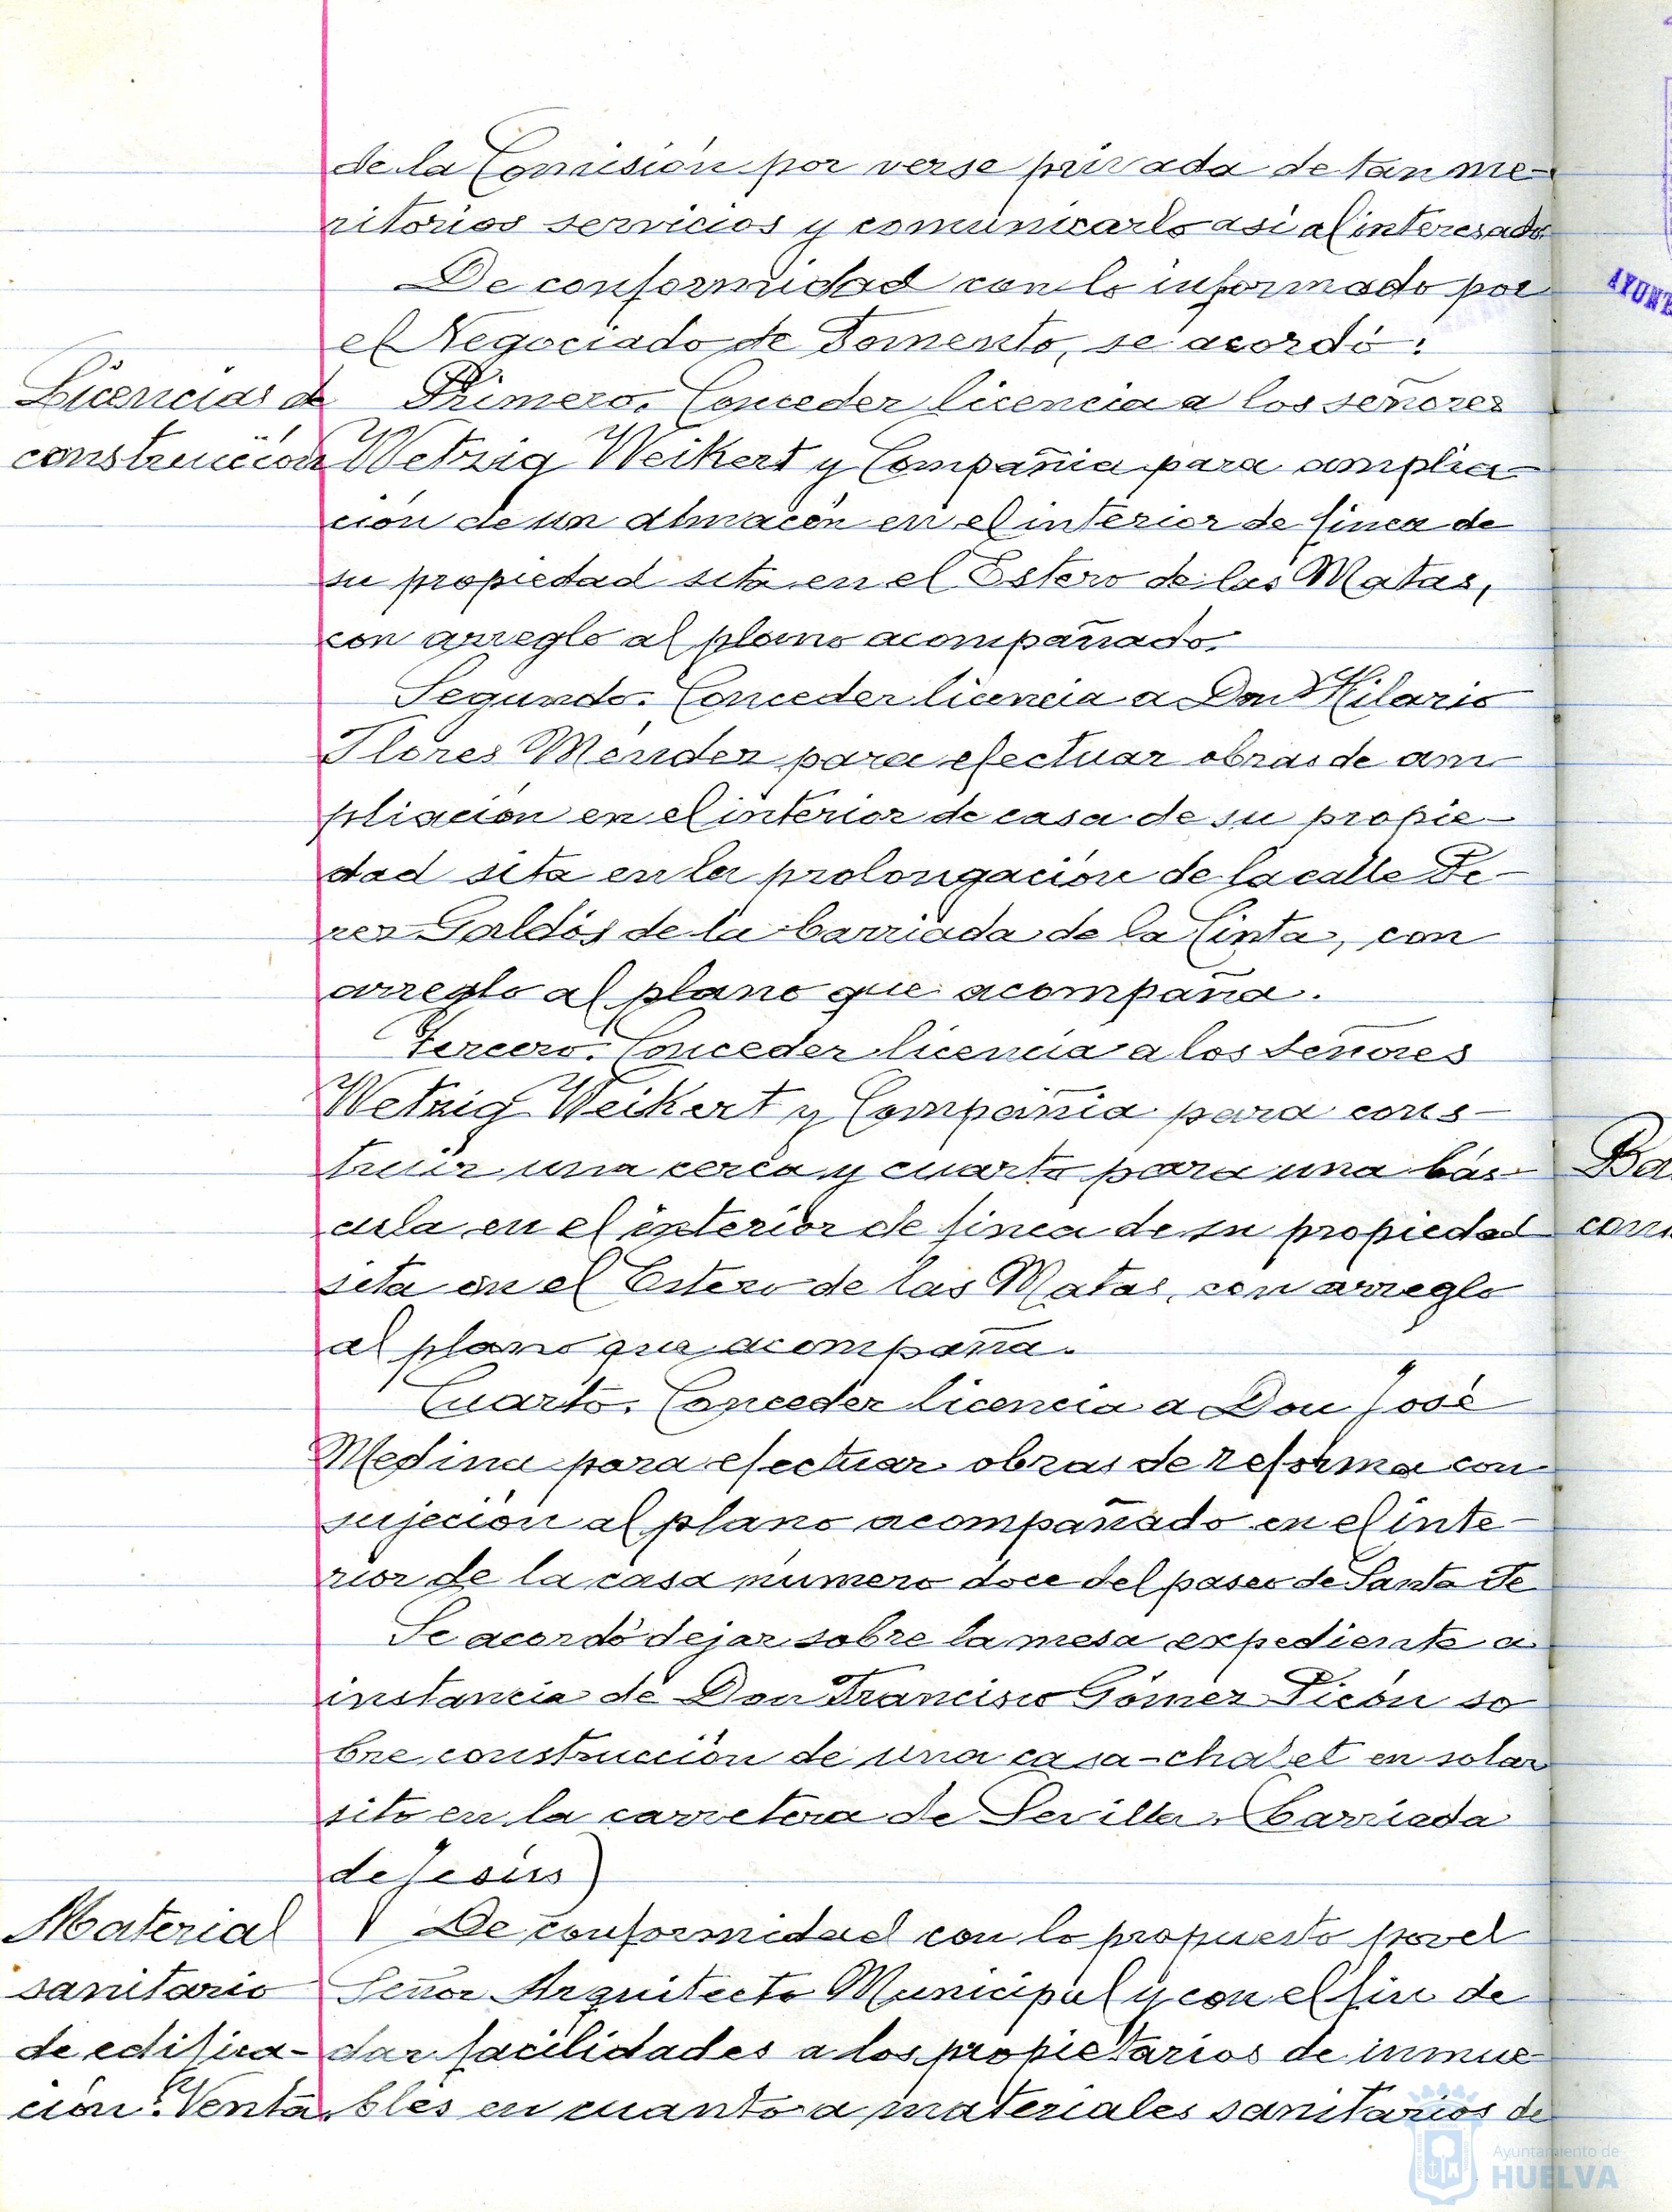 de la Comisión por verse privada de tan me-
ritorios servicios y comunicarlo asi al interesado
De conformidad con lo informado por
el Negociado de Fomento, se acordó:
Licencias de
construcción
Primero. Conceder licencia a los señores
Wetzig Weikert y Compañia para amplia-
ción de un almacén en el interior de finca de
su propiedad sita en el Estero de las Matas,
con arreglo al plano acompañado.
Segundo. Conceder licencia a Don Hilario
Flores Méndez para efectuar obras de am-
pliación en el interior de casa de su propie-
dad sita en la prolongación de la calle Pe-
rez Galdós de la barriada de la Cinta, con
arreglo al plano que acompaña.
Tercero. Conceder licencia a los Señores
Wetzig Weikert y Compañia para cons-
truir una cerca y cuarto para una bás-
cula en el interior de finca de su propiedad
sita en el Estero de las Matas, con arreglo
al plano que acompaña.
Cuarto. Conceder licencia a Don José
Medina para efectuar obras de reforma con
sujeción al plano acompañado en el inte-
rior de la casa número doce del paseo de Santa Fe
Se acordó dejar sobre la mesa expediente a
instancia de Don Francisco Gómez Picón so
bre construcción de una casa-chalet en solar
sito en la carretera de Sevilla (barriada
de Jesús)
Material
sanitario
de edifica-
ción. Venta.
De conformidad con lo propuesto por el
Señor Arquitecto Municipal y con el fin de
dar facilidades a los propietarios de inmue-
bles en cuanto a materiales sanitarios de
AYUN
Ba
con
Ayuntamiento de
HUELVA